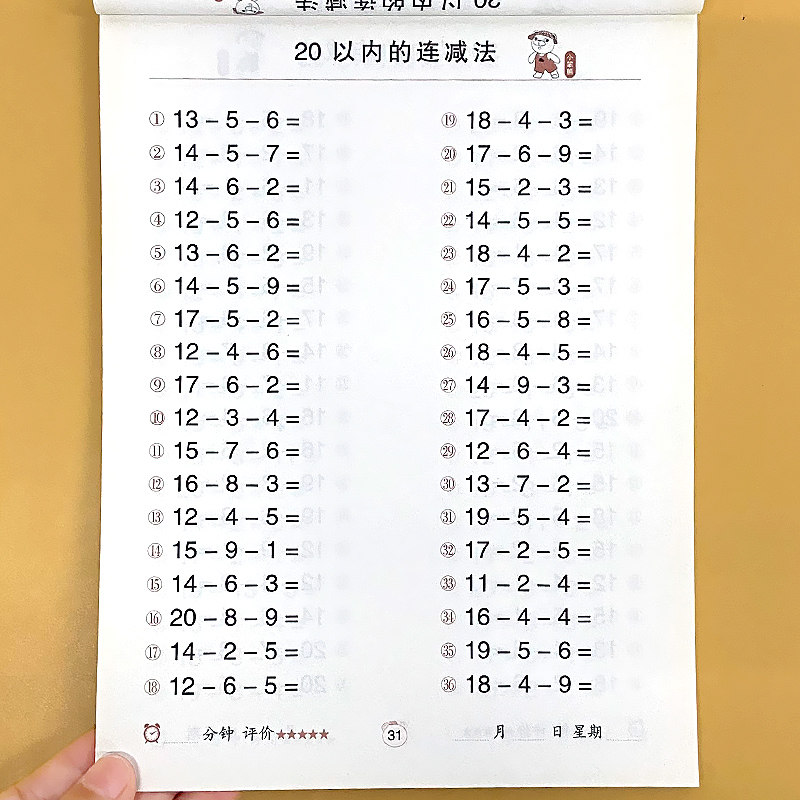 20以内的连减法
20 以内的连减法
小笨熊
① 13－5－6＝
② 14－5－7＝
③ 14－6－2＝
④ 12－5－6＝
⑤ 13－6－2＝
⑥ 14－5－9＝
⑦ 17－5－2＝
⑧ 12－4－6＝
⑨ 17－6－2＝
⑩ 12－3－4＝
⑪ 15－7－6＝
⑫ 16－8－3＝
⑬ 12－4－5＝
⑭ 15－9－1＝
⑮ 14－6－3＝
⑯ 20－8－9＝
⑰ 14－2－5＝
⑱ 12－6－5＝
⑲ 18－4－3＝
⑳ 17－6－9＝
㉑ 15－2－3＝
㉒ 14－5－5＝
㉓ 18－4－2＝
㉔ 17－5－3＝
㉕ 16－5－8＝
㉖ 18－4－5＝
㉗ 14－9－3＝
㉘ 17－4－2＝
㉙ 12－6－4＝
㉚ 13－7－2＝
㉛ 19－5－4＝
㉜ 17－2－5＝
㉝ 11－2－4＝
㉞ 16－4－4＝
㉟ 19－5－6＝
㊱ 18－4－9＝
分钟 评价★★★★★ 31 月 日 星期